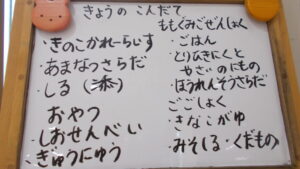 きょうの こんだて
・きのこかれーらいす
・あまなつさらだ
・しる（添）
おやつ
しおせんべい
ぎゅうにゅう
ももくみごぜんしょく
・ごはん
・とりひきにくと
やさいのにもの
・ほうれんそうさらだ
ごごしょく
・きなこがゆ
・みそしる・くだもの